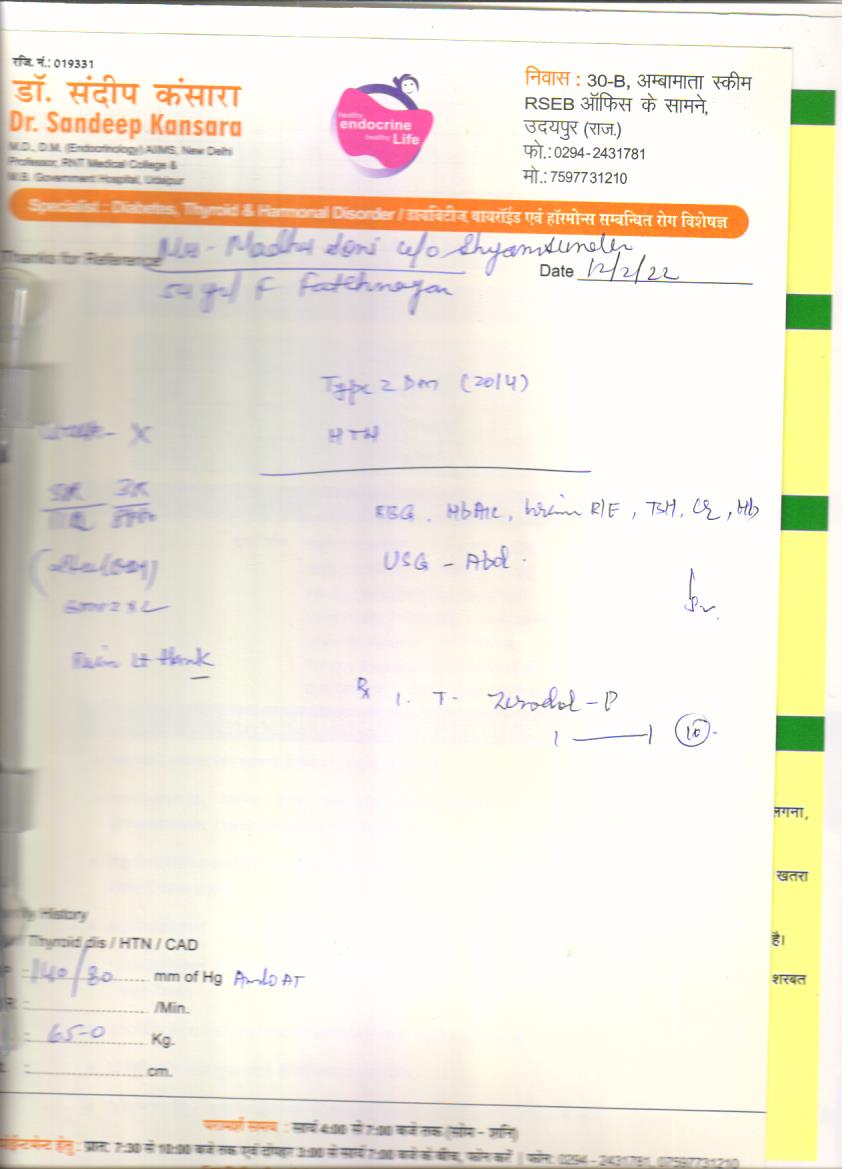 रजि. नं.: 019331
डॉ. संदीप कंसारा
Dr. Sandeep Kansara
M.D., D.M. (Endocrinology) AIIMS, New Delhi
Professor, RNT Medical College &
M.B. Government Hospital, Udaipur
healthy
endocrine
healthy Life
निवास : 30-B, अम्बामाता स्कीम
RSEB ऑफिस के सामने,
उदयपुर (राज.)
फो.: 0294-2431781
मो.: 7597731210
Specialist : Diabetes, Thyroid & Harmonal Disorder / डायबिटीज, थायरॉईड एवं हॉरमोन्स सम्बन्धित रोग विशेषज्ञ
Thanks for Reference
Madhu Soni w/o Shyamsunder
Date 12/2/22
54 yr/ F Fatehnagar
Type 2 Dm (2014)
HTN
RBG, HbA1c, Urine R/E, TSH, Cr, Hb
USG - Abd.
Rx 1. T- Zerodol-P
1 1 (10)
History
Thyroid dis / HTN / CAD
140/80 mm of Hg
/Min.
65-0 Kg.
cm.
लगना,
खतरा
है।
शरबत
परामर्श समय : सायं 4:00 से 7:00 बजे तक (सोम - शनि)
हेतु : प्रातः 7:30 से 10:00 बजे तक एवं दोपहर 3:00 से सायं 7:00 बजे के बीच, फोन करें | फोन: 0294 - 2431781, 07597731210